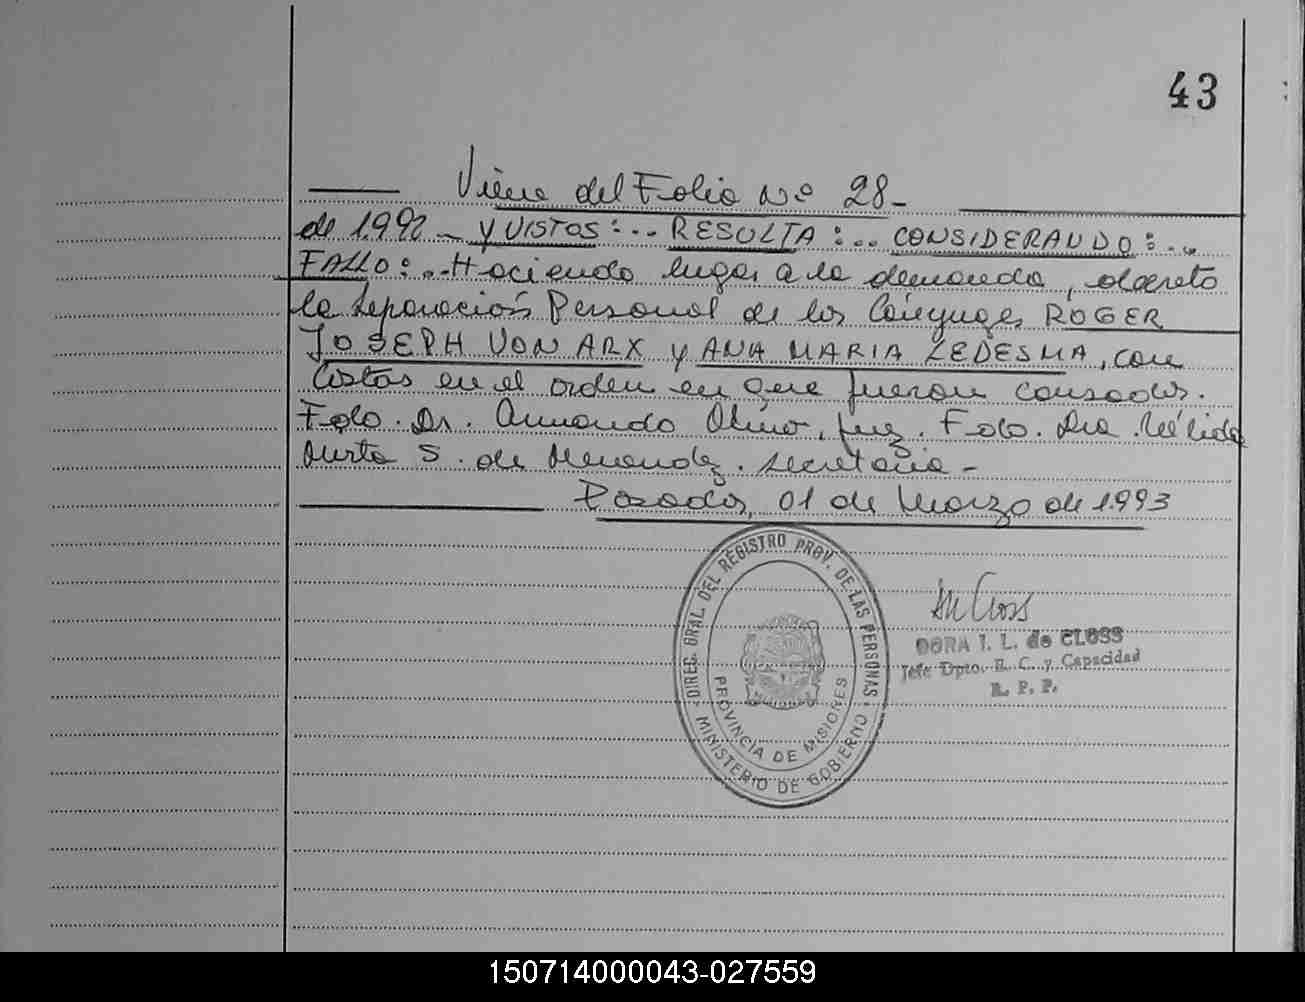 43
Viene del Folio Nº 28-
de 1.992 - Y VISTOS:... RESULTA:... CONSIDERANDO:...
FALLO:...Haciendo lugar a la demanda, decreto
la Separación Personal de los Cónyuges ROGER
JOSEPH VON ARX y ANA MARIA LEDESMA, con
Costas en el orden en que fueron causados.
Fdo. Dr. Armando Juez. Fdo. Dra. Nélida
Mirta S. de Menendez. Secretaria -
Posadas, 01 de Marzo de 1.993
DIREC. GRAL. DEL REGISTRO PROV. DE LAS PERSONAS
PROVINCIA DE MISIONES
MINISTERIO DE GOBIERNO
DORA I. L. de CLOSS
Jefe Dpto. R. C. y Capacidad
R. P. P.
150714000043-027559